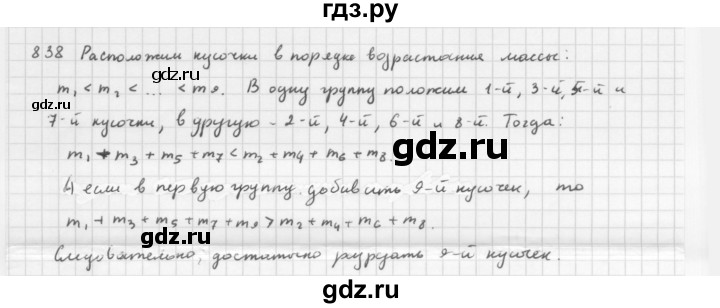 гдз.ру
838 Расположим кусочки в порядке возрастания массы:
m₁ < m₂ < ... < m₉. В одну группу положим 1-й, 3-й, 5-й и
7-й кусочки, в другую - 2-й, 4-й, 6-й и 8-й. Тогда:
m₁ + m₃ + m₅ + m₇ < m₂ + m₄ + m₆ + m₈.
А если в первую группу добавить 9-й кусочек, то
m₁ + m₃ + m₅ + m₇ + m₉ > m₂ + m₄ + m₆ + m₈.
Следовательно, достаточно разрезать 9-й кусочек.
гдз.ру
гдз.ру
гдз.ру
гдз.ру